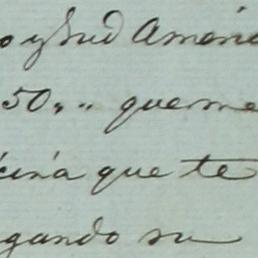 o y Sud Améric
50,, " que me
cina que te
gando su